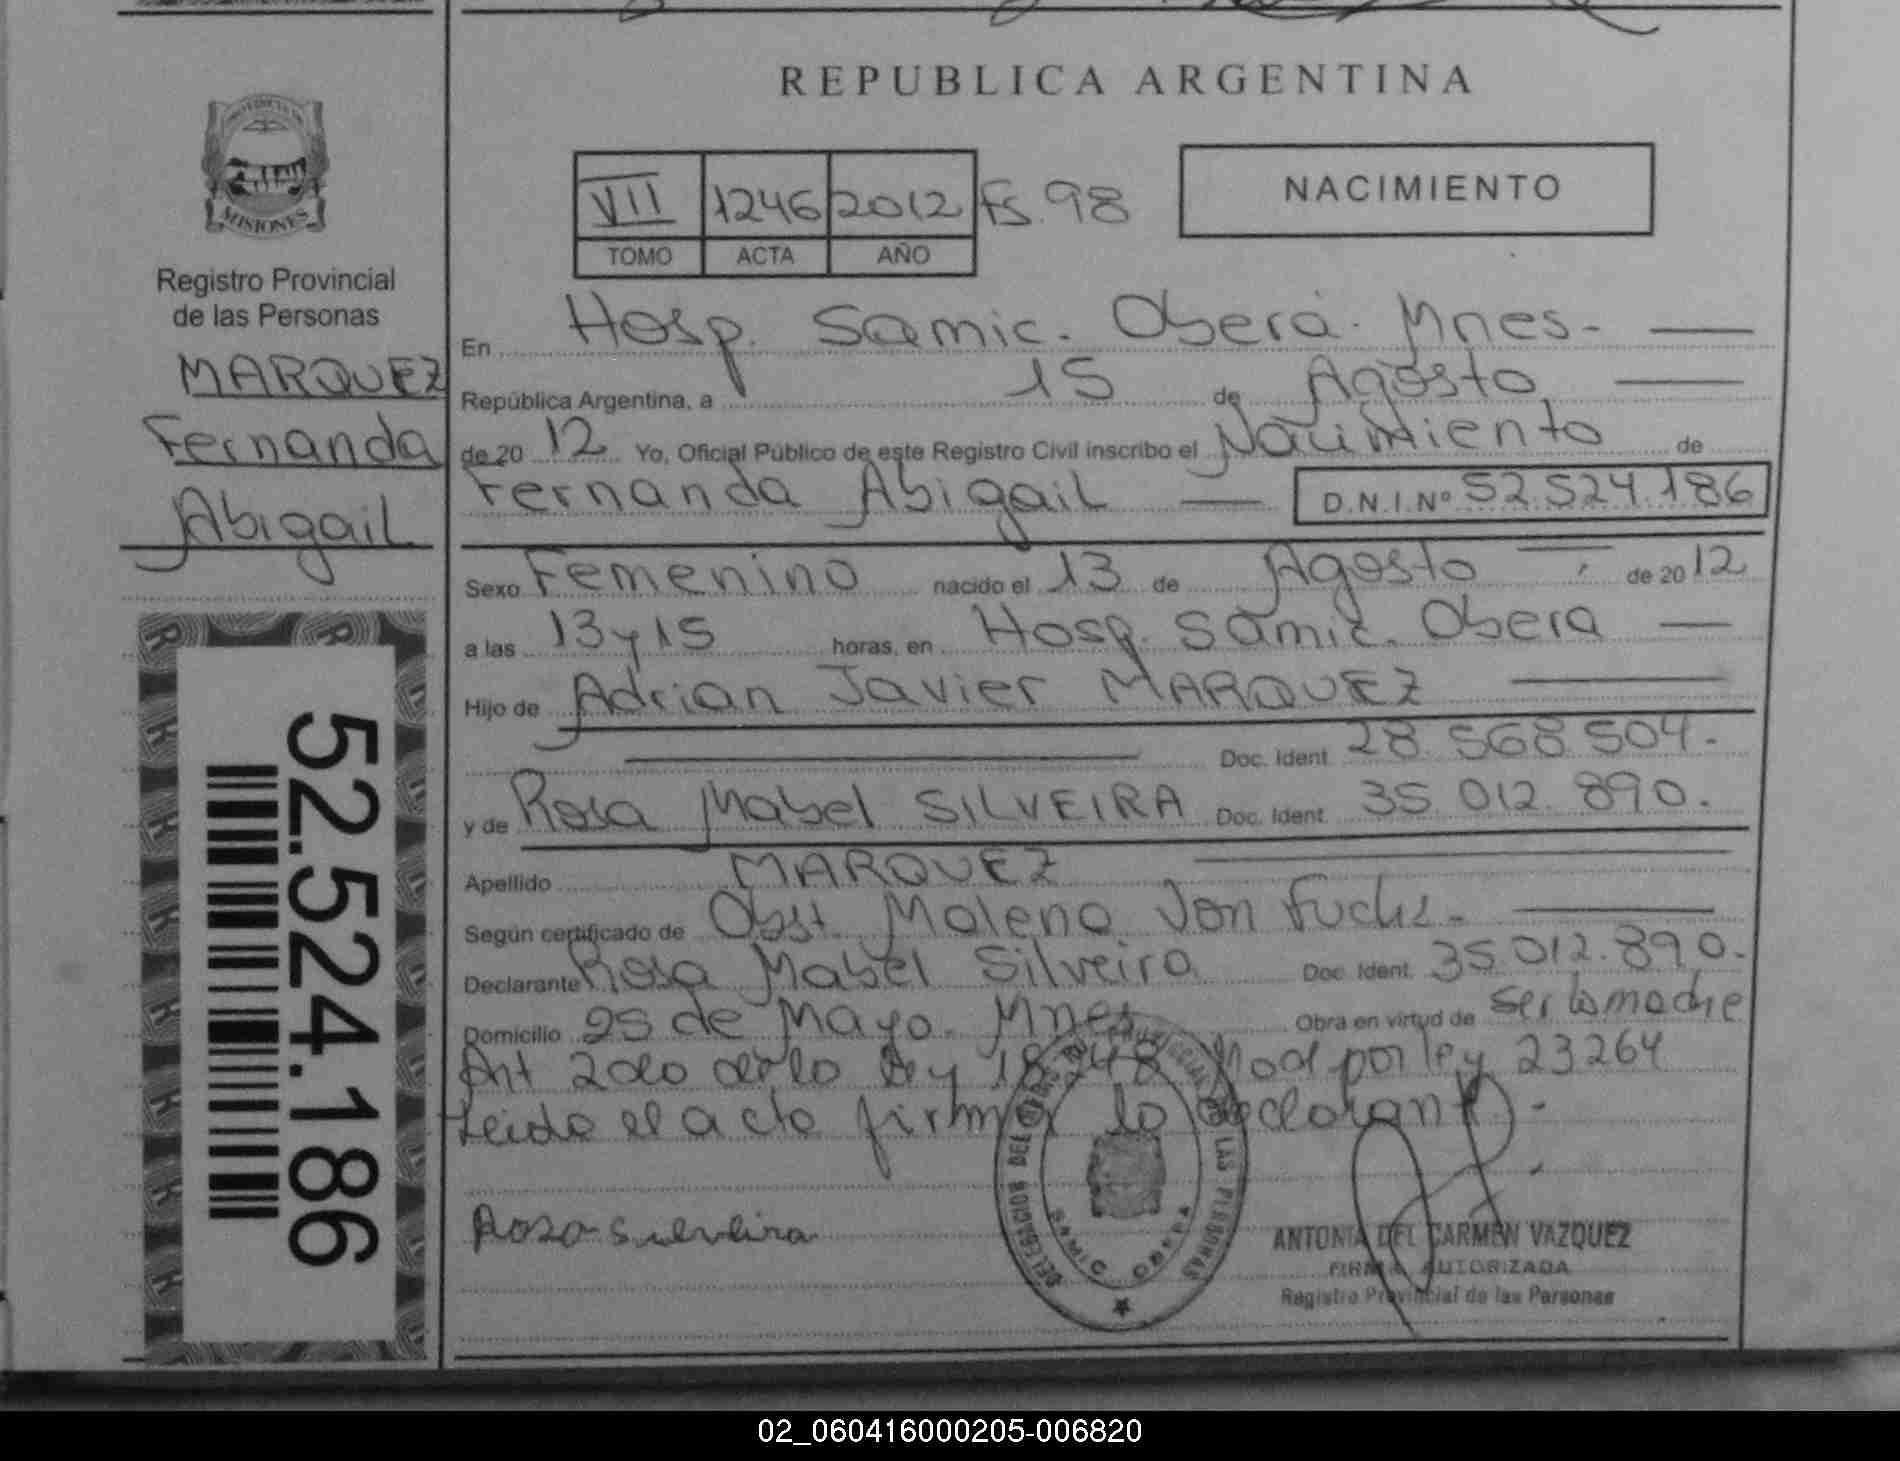 REPUBLICA ARGENTINA
MISIONES
Registro Provincial
de las Personas
MARQUEZ
Fernanda
Abigail
52.524.186
VII 1246 2012 Fs. 98
TOMO ACTA AÑO
NACIMIENTO
En Hosp. Samic. Oberá. Mnes.
República Argentina, a 15 de Agosto
de 20 12 Yo, Oficial Público de este Registro Civil inscribo el Nacimiento de
Fernanda Abigail D.N.I.Nº 52.524.186
Sexo Femenino nacido el 13 de Agosto de 20 12
a las 13 y 15 horas, en Hosp. Samic. Obera
Hijo de Adrian Javier MARQUEZ
Doc. Ident. 28.568.504.
y de Rosa Mabel SILVEIRA Doc. Ident. 35.012.890.
Apellido MARQUEZ
Según certificado de Obst. Malena Von Fuchs.
Declarante Rosa Mabel Silveira Doc. Ident. 35.012.890.
Domicilio 25 de Mayo. Mnes Obra en virtud de ser la madre
Art 2do de la ley 18248 Mod por ley 23264
Leida el acta firma la declarante.
Rosa Silveira
DELEGACION DEL LAS PERSONAS
SAMIC OBERA
ANTONIA DEL CARMEN VAZQUEZ
FIRMA AUTORIZADA
Registro Provincial de las Personas
02_060416000205-006820